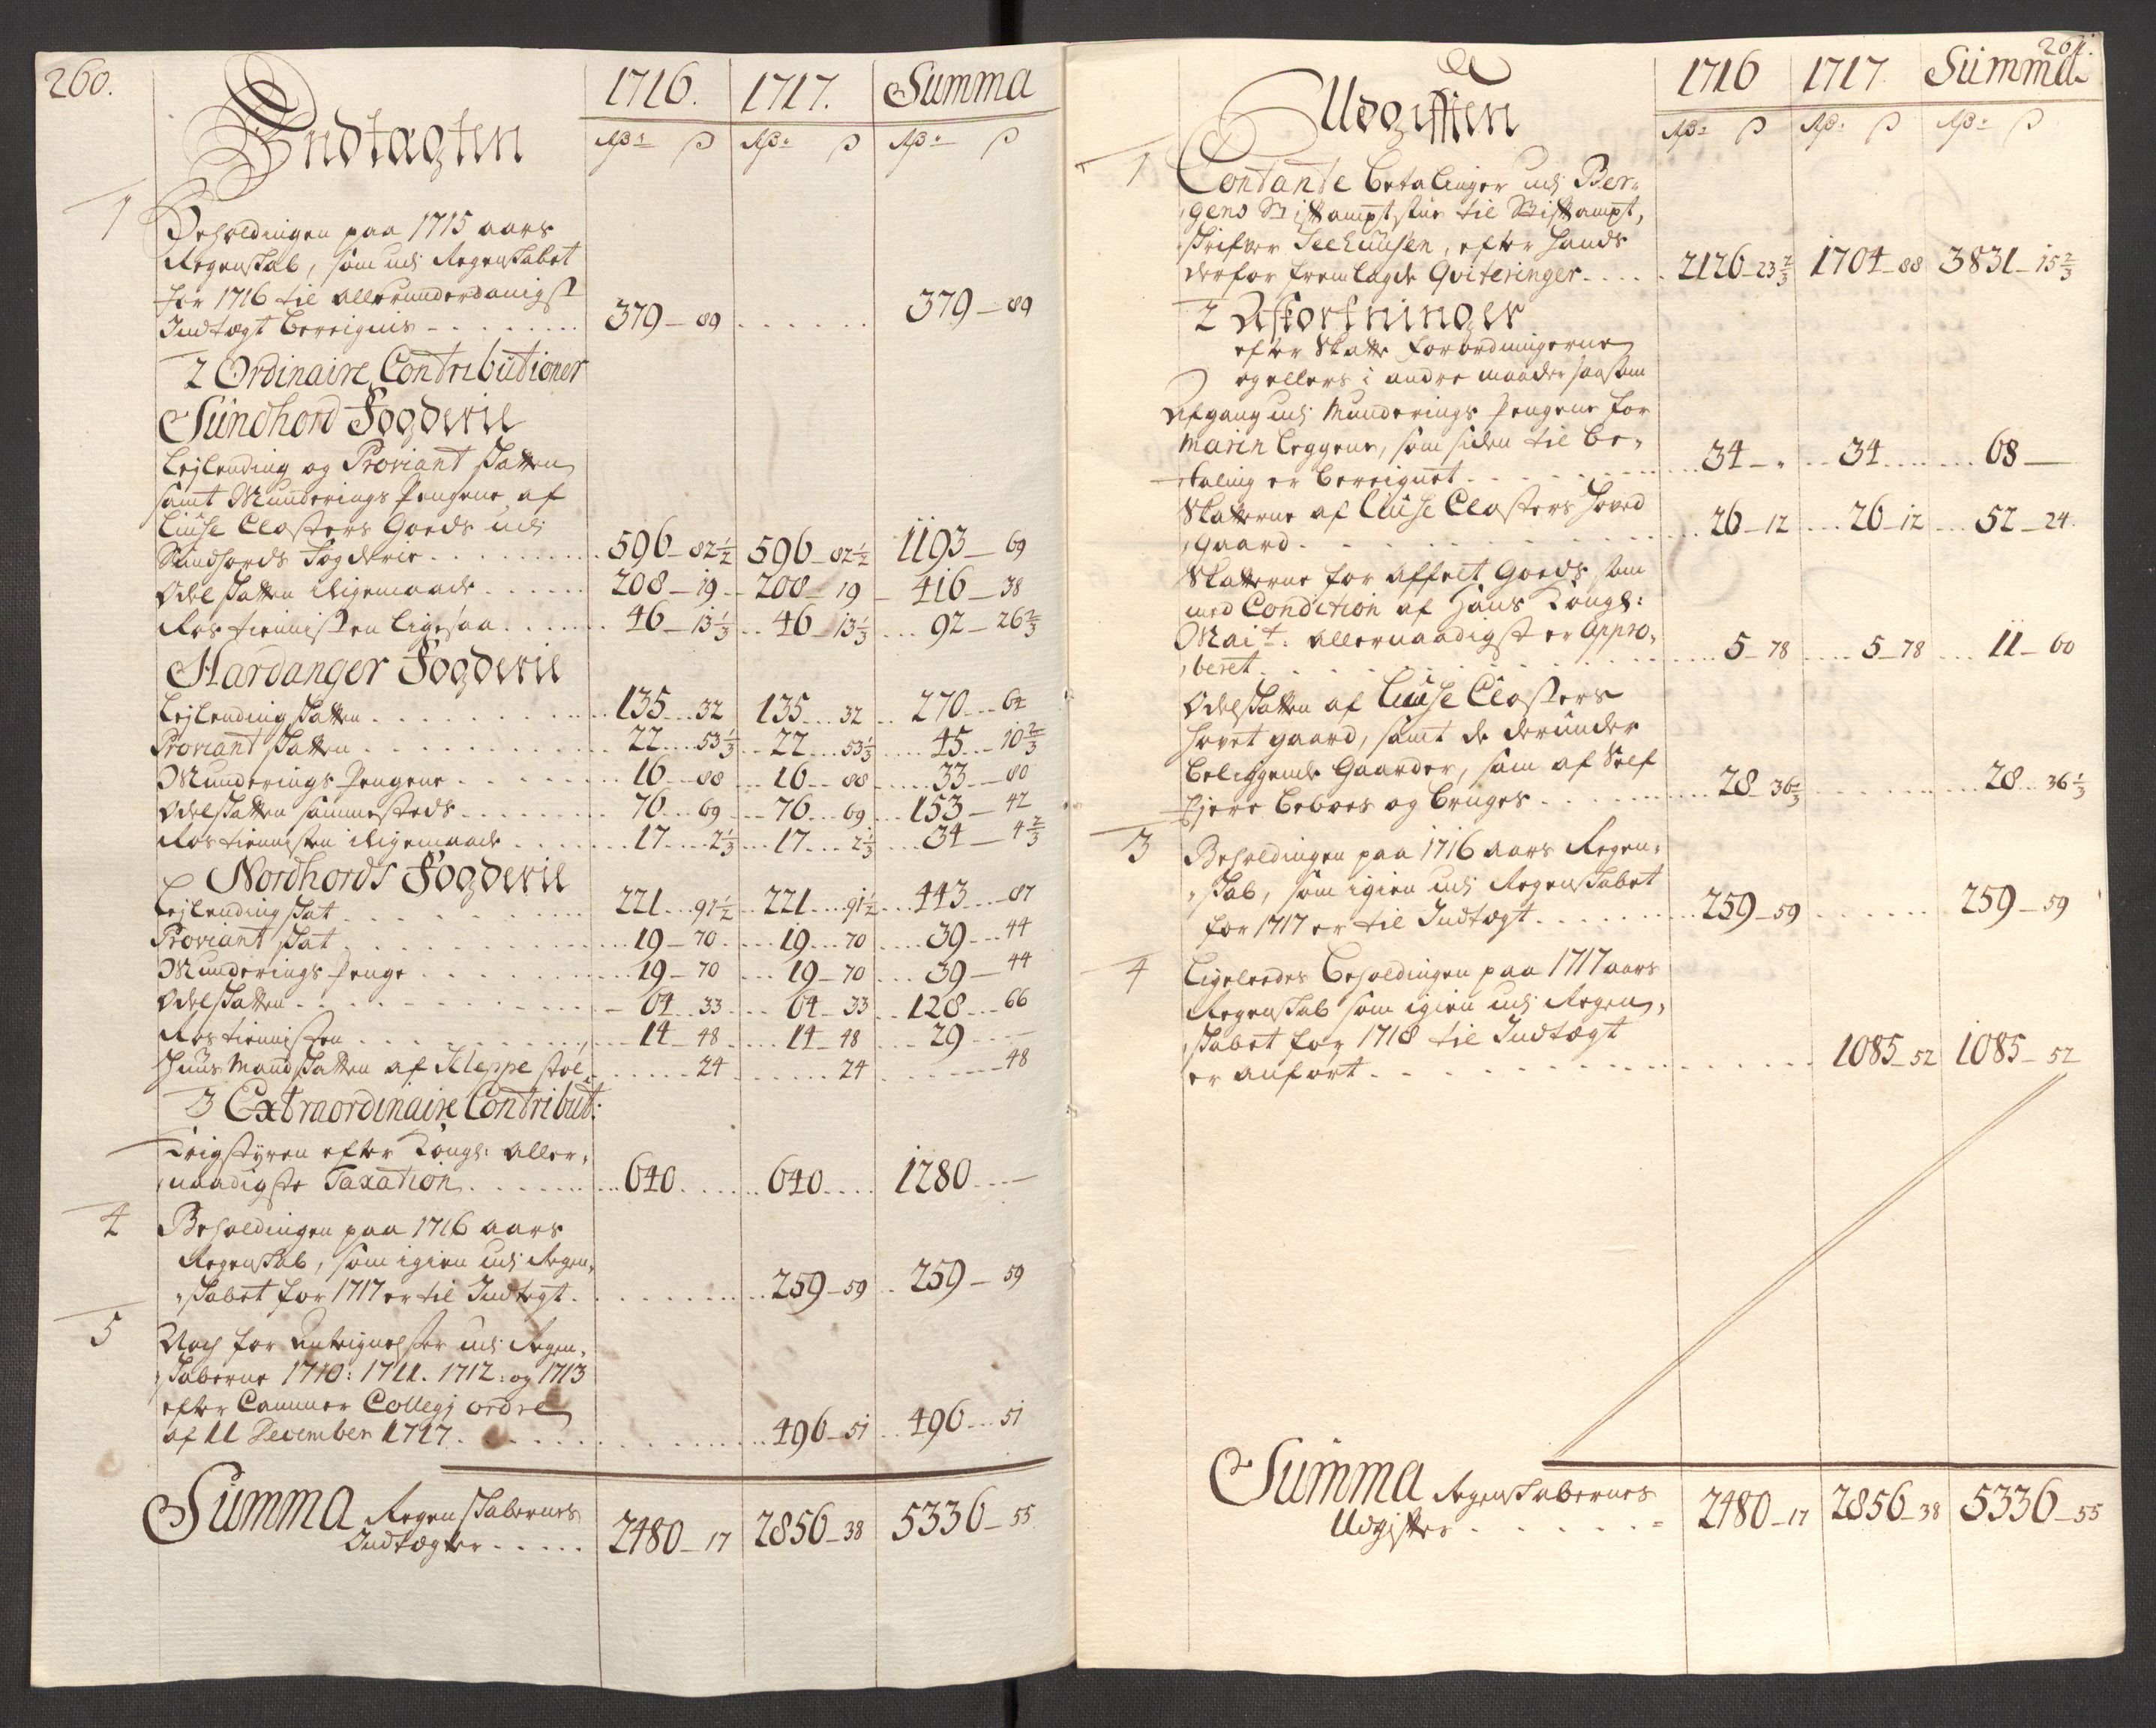 260.
Indtagten
1716. 1717. Summa
Rdr ß Rdr ß Rdr ß
1 Beholdingen paa 1715 aars
Regenskab, som udj Regenskabet
for 1716 til allerunderdanigst
Indtægt bereignis . . . 379 – 89 . . . 379 – 89
2 Ordinaire Contributioner
Sundhord Fogderie
Lejlending og Proviant skatten
samt Munderings Pengene af
Liuse Closters Goeds udj
Sundhords Fogderie . . . 596 – 82½ 596 – 82½ 1193 – 69
Odelskatten ligemaade . . . 208 – 19 208 – 19 416 – 38
Rostiennisten ligesaa . . . 46 – 13⅓ 46 – 13⅓ 92 – 26⅔
Hardanger Fogderie
Lejlending skatten . . . 135 – 32 135 – 32 270 – 64
Proviant skatten . . . 22 – 53⅓ 22 – 53⅓ 45 – 10⅔
Munderings Pengene . . . 16 – 88 16 – 88 33 – 80
Odelskatten sammesteds . . . 76 – 69 76 – 69 153 – 42
Rostiennisten ligemaade . . . 17 – 2⅓ 17 – 2⅓ 34 – 4⅔
Nordhords Fogderie
Lejlending skat . . . 221 – 91½ 221 – 91½ 443 – 87
Proviant skat . . . 19 – 70 19 – 70 39 – 44
Munderings Penge . . . 19 – 70 19 – 70 39 – 44
Odelskatten . . . 64 – 33 64 – 33 128 – 66
Rostiennisten . . . 14 – 48 14 – 48 29 –
Huus Mand skatten af Kleppe stöl . . . 24 . . . 24 . . . 48
3 Extraordinaire Contribut:
Krigstyren efter Kongl: aller„
naadigste Taxation . . . 640 . . . 640 . . . 1280 –
4 Beholdingen paa 1716 aars
Regenskab, som igien udj Regen„
„skabet for 1717 er til Indtegt . . . 259 – 59 259 – 59
5 Noch for Anteignelser udj Regen„
„skaberne 1710: 1711. 1712: og 1713
efter Cammer Collegj ordre
af 11 December 1717 . . . 496 – 51 496 – 51
Summa Regenskabernes
Indtægter . . . 2480 – 17 2856 – 38 5336 – 55
261.
Udgifften
1716 1717 Summa
Rdr ß Rdr ß Rdr ß
1 Contante betalinger udj Ber„
„gens Stiftampt stue til Stiftampt„
skrifver Seehuusen, efter hands
derfor fremlagde Qviteringer . . . 2126 – 23⅔ 1704 – 88 3831 – 15⅔
2 Afkortninger
efter Skatte forordningerne
og ellers i andre maader saasom
Afgang udj Munderings Pengene for
Marin leggene, som siden til be„
„taling er bereignet . . . 34 – „ 34 . . . 68 –
Skatterne af Liuse Closters Hoved
gaard . . . 26 – 12 26 – 12 52 – 24
Skatterne for affect Goeds som
med Condition af Hans Kongl:
Mait: allernaadigst er appro„
„beret . . . 5 – 78 5 – 78 11 – 60
Odelskatten af Liuse Closters
hovet gaard, samt de derunder
beliggende Gaarder, som af Self
Ejere beboes og bruges . . . 28 – 36⅓ . . . 28 – 36⅓
3 Beholdingen paa 1716 aars Regen„
„skab, som igien udj Regenskabet
for 1717 er til Indtægt . . . 259 – 59 . . . 259 – 59
4 Ligeledes Beholdingen paa 1717 aars
Regenskab som igien udj Regen„
„skabet for 1718 til Indtægt
er anfört . . . 1085 – 52 1085 – 52
Summa Regenskabernes
Udgifter . . . 2480 – 17 2856 – 38 5336 – 55